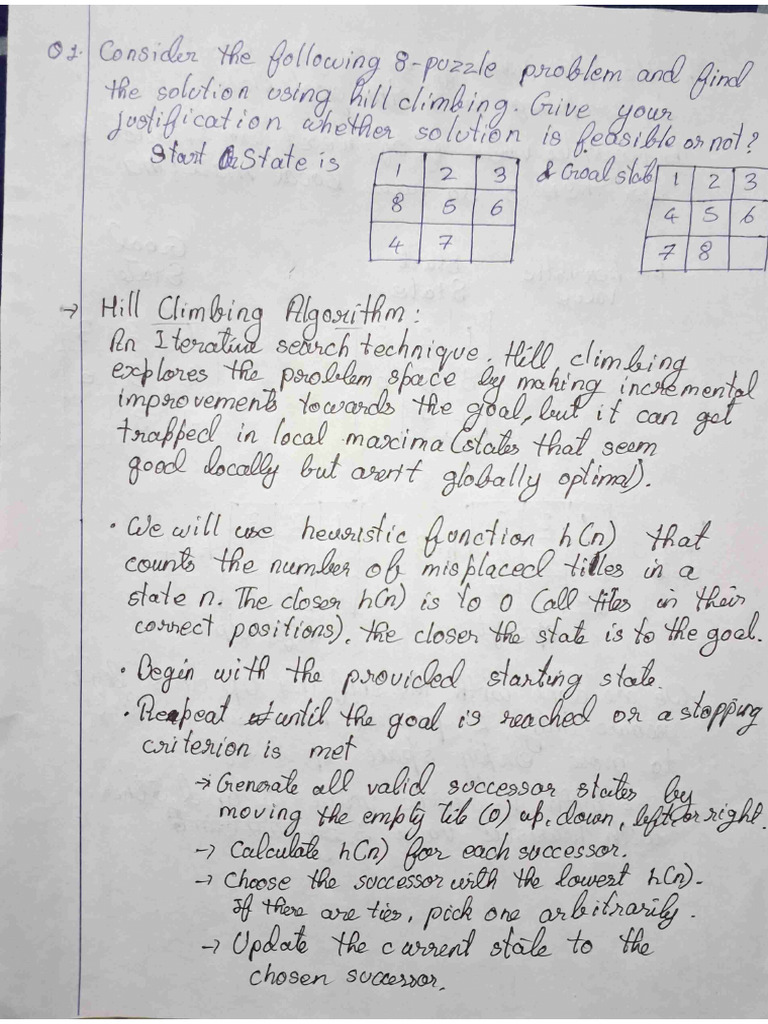 Q1. Consider the following 8-puzzle problem and find
the solution using hill climbing. Give your
justification whether solution is feasible or not?
Start State is
1 2 3
8 5 6
4 7
& Goal stat
1 2 3
4 5 6
7 8
→ Hill Climbing Algorithm:
An Iterative search technique. Hill climbing
explores the problem space by making incremental
improvements towards the goal, but it can get
trapped in local maxima (states that seem
good locally but aren't globally optimal).
• We will use heuristic function h(n) that
counts the number of misplaced tiles in a
state n. The closer h(n) is to 0 (all tiles in their
correct positions), the closer the state is to the goal.
• Begin with the provided starting state.
• Repeat until the goal is reached or a stopping
criterion is met
→ Generate all valid successor states by
moving the empty tile (0) up, down, left or right.
→ Calculate h(n) for each successor.
→ Choose the successor with the lowest h(n).
If there are ties, pick one arbitrarily.
→ Update the current state to the
chosen successor.